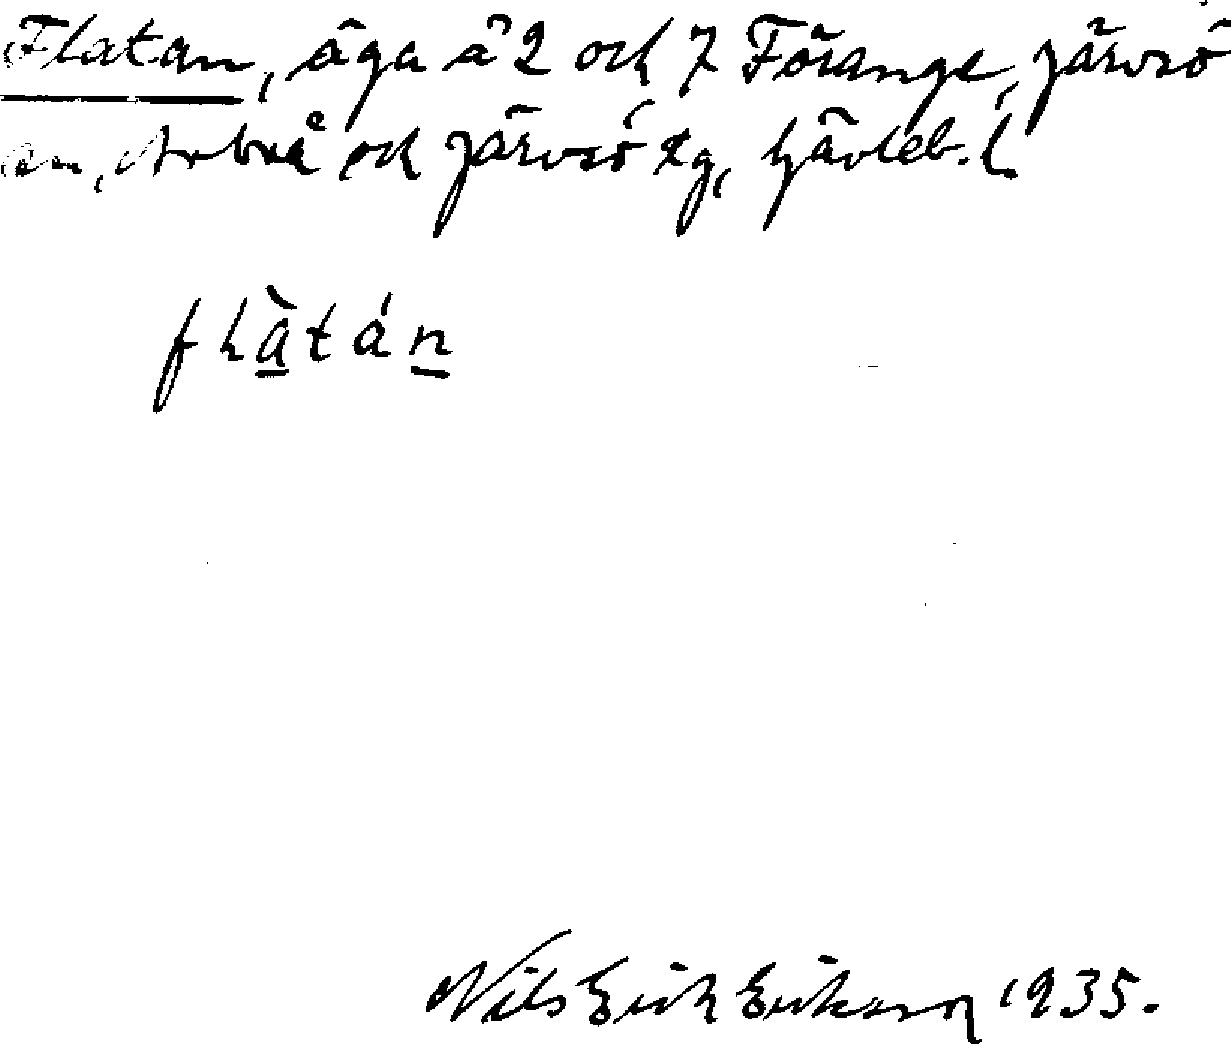 Flatan, äga å 2 och 7 Föränge, Järvsö
sn, Arbrå och Järvsö tg, Gävleb. l.
flàtán
Nils Erik Eriksson 1935.